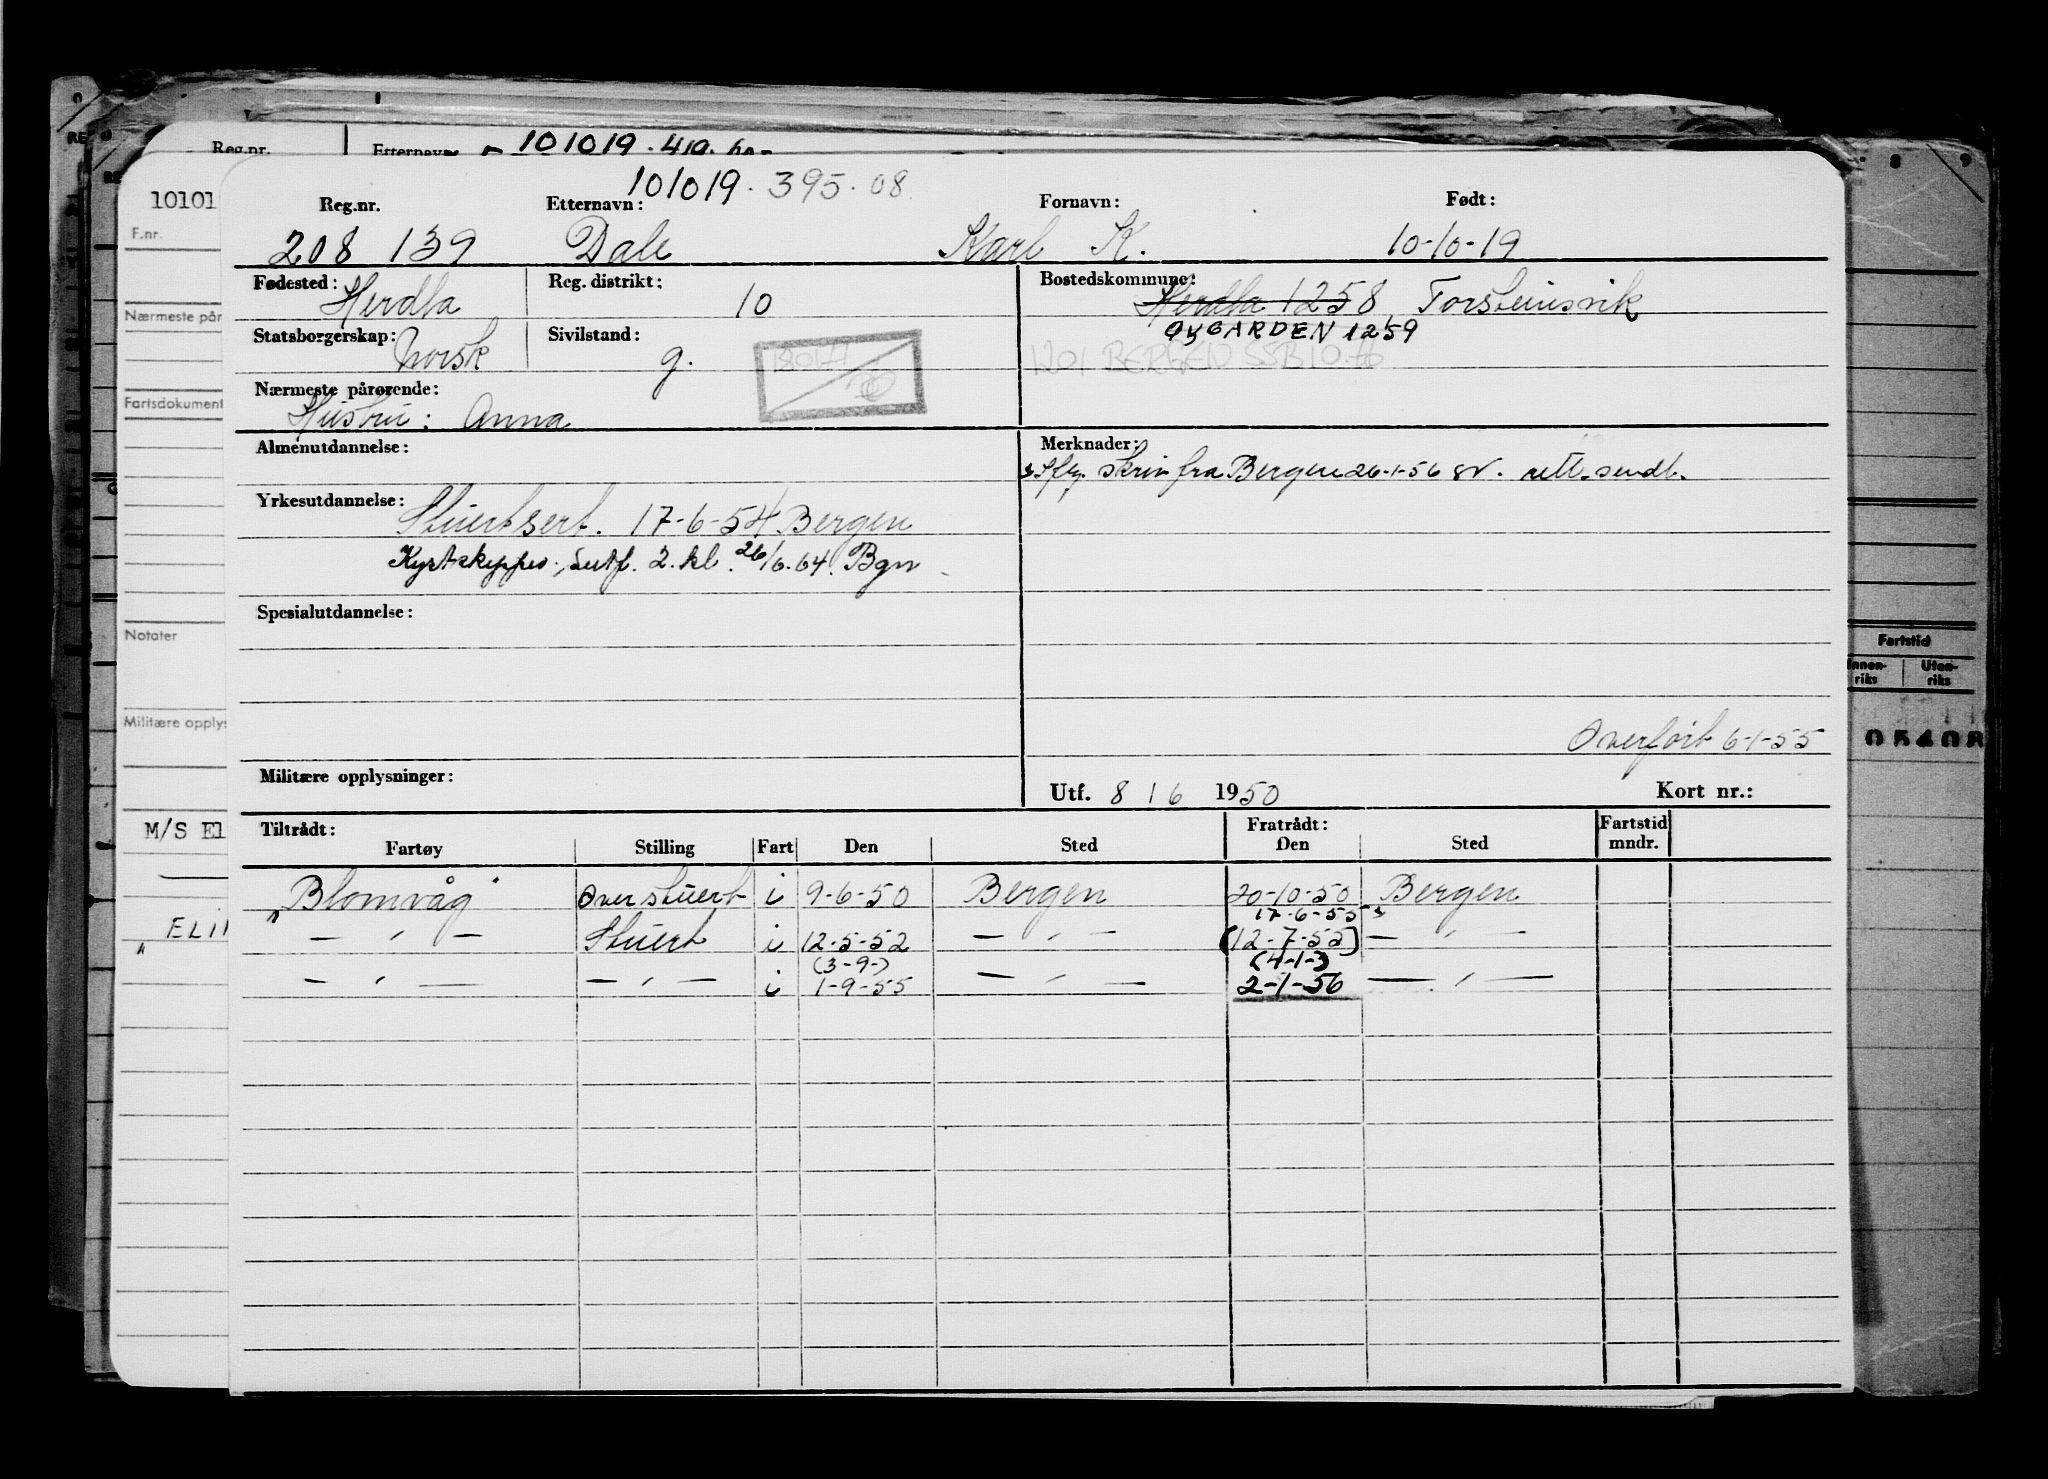 Reg.nr. Etternavn 101019.419.
101019.395.08
10101 Reg.nr. Etternavn: Fornavn: Født:
F.nr. 208 139 Dale Karl K. 10-10-19
Fødested: Herdla Reg. distrikt: 10 Bostedskommune: Herdla 1258 Torsteinsvik
Nærmeste på
Statsborgerskap: Norsk Sivilstand: g. ØYGARDEN 1259
1201 BERGEN SSB 10.76
Nærmeste pårørende:
Hustru: Anna
Fartsdokument
Almenutdannelse: Merknader:
skriv fra Bergen 26-1-56 rett. sendt.
Yrkesutdannelse: Stuertsert. 17-6-54 Bergen
Kystskipper sertf. 2. kl. 26/6.64. Bgn
Spesialutdannelse:
Notater
Fartstid
Innen-riks Uten-riks
Militære opplys
Overført 6-1-55
05408
Militære opplysninger: Utf. 8 / 6 1950 Kort nr.:
M/S El
Tiltrådt: Fratrådt: Fartstid
Fartøy Stilling Fart Den Sted Den Sted mndr.
"Blomvåg" Overstuert i 9-6-50 Bergen 20-10-50 Bergen
17-6-55
— " — Stuert i 12-5-52 — " — (12-7-55) — " —
(3-9-) (4-1-)
— " — — " — i 1-9-55 — " — 2-1-56 — " —
" ELI